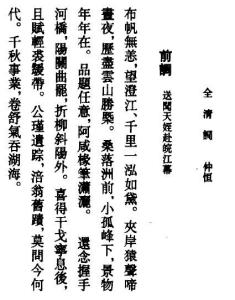 全清詞　仲恒
前調　送聞天姪赴皖江幕
布帆無恙，望澄江、千里一泓如黛。夾岸猿聲啼
晝夜，歷盡雲山勝槩。桑落洲前，小孤峰下，景物
年年在。品題任意，阿咸椽筆瀟灑。　還念握手
河橋，陽關曲罷，折柳斜陽外。喜得干戈寧息後，
且賦輕裘緩帶。公瑾遺踪，涪翁舊蹟，莫問今何
代。千秋事業，卷舒氣吞湖海。